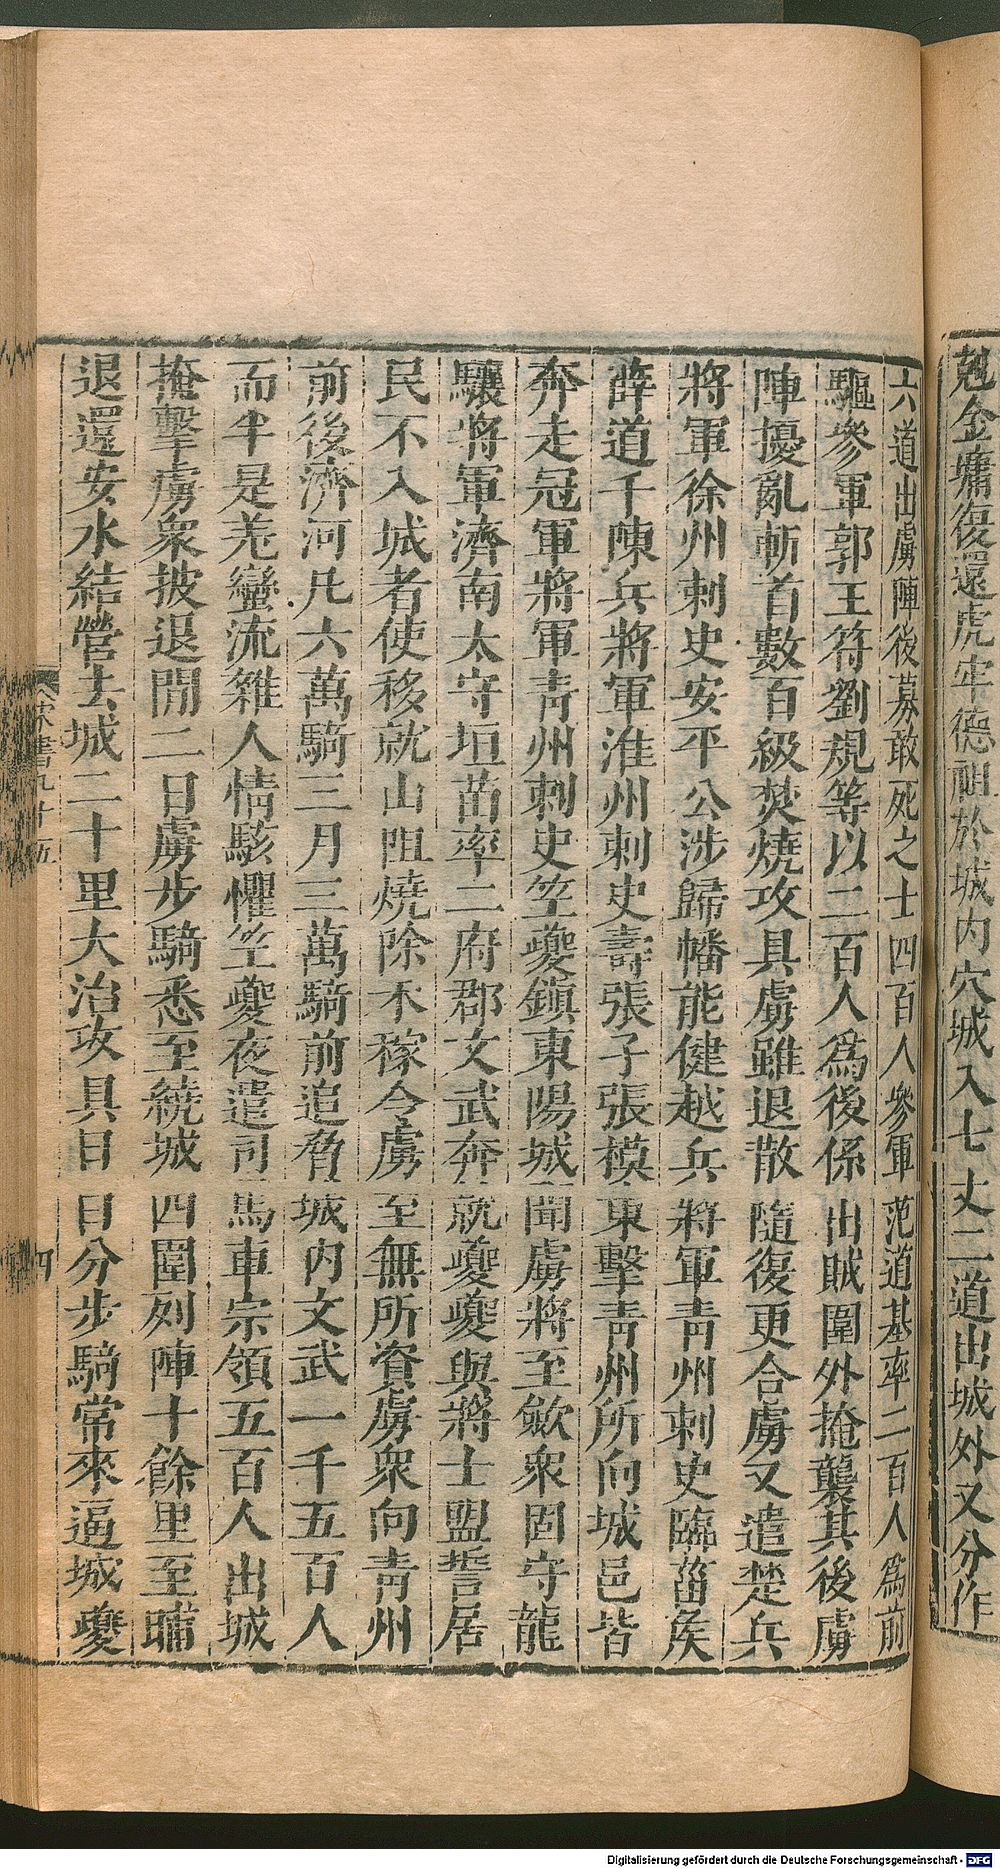 尅金墉復還虎牢德祖於城内穴城入七丈二道出城外又分作
六道出虜陣後募敢死之士四百人參軍范道基率二百人爲前
驅參軍郭王符劉規等以二百人爲後係出賊圍外掩襲其後虜
陣擾亂斬首數百級焚燒攻具虜雖退散隨復更合虜又遣楚兵
將軍徐州刺史安平公涉歸幡能健越兵將軍青州刺史臨菑侯
薛道千陳兵將軍淮州刺史壽張子張模東擊青州所向城邑皆
奔走冠軍將軍青州刺史笁夔鎮東陽城聞虜將至歛衆固守龍
驤將軍濟南太守垣苗率二府郡文武奔就夔夔與將士盟誓居
民不入城者使移就山阻燒除禾稼令虜至無所資虜衆向青州
前後濟河凡六萬騎三月三萬騎前追脅城内文武一千五百人
而半是羌蠻流雜人情駭懼笁夔夜遣司馬車宗領五百人出城
掩擊虜衆披退間二日虜步騎悉至繞城四圍列陣十餘里至晡
退還安水結營去城二十里大治攻具日日分步騎常來逼城夔
宋書九十五
四
Digitalisierung gefördert durch die Deutsche Forschungsgemeinschaft - DFG